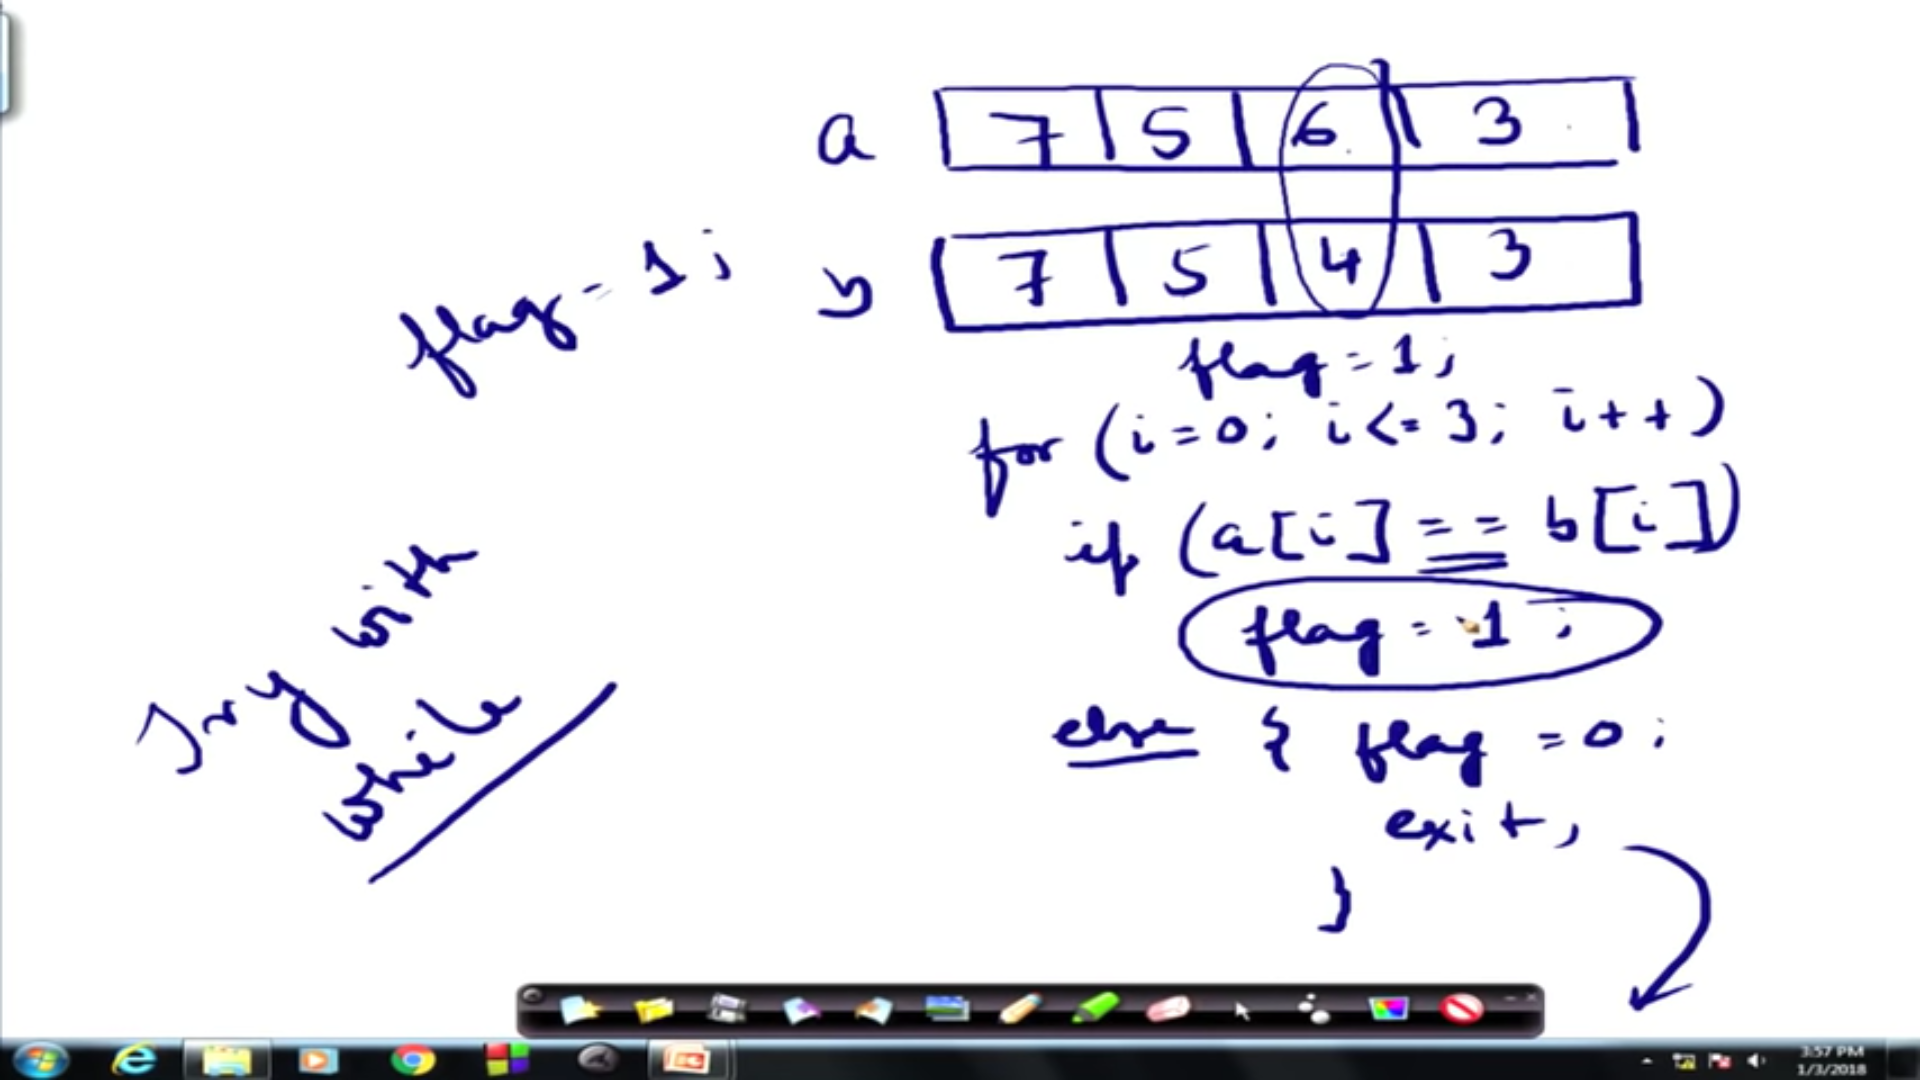 a 7 5 6 3
b 7 5 4 3
flag = 1;
flag = 1;
for (i = 0; i <= 3; i++)
if (a[i] == b[i])
flag = 1;
else { flag = 0;
exit;
}
Try with
while
3:57 PM
1/3/2018